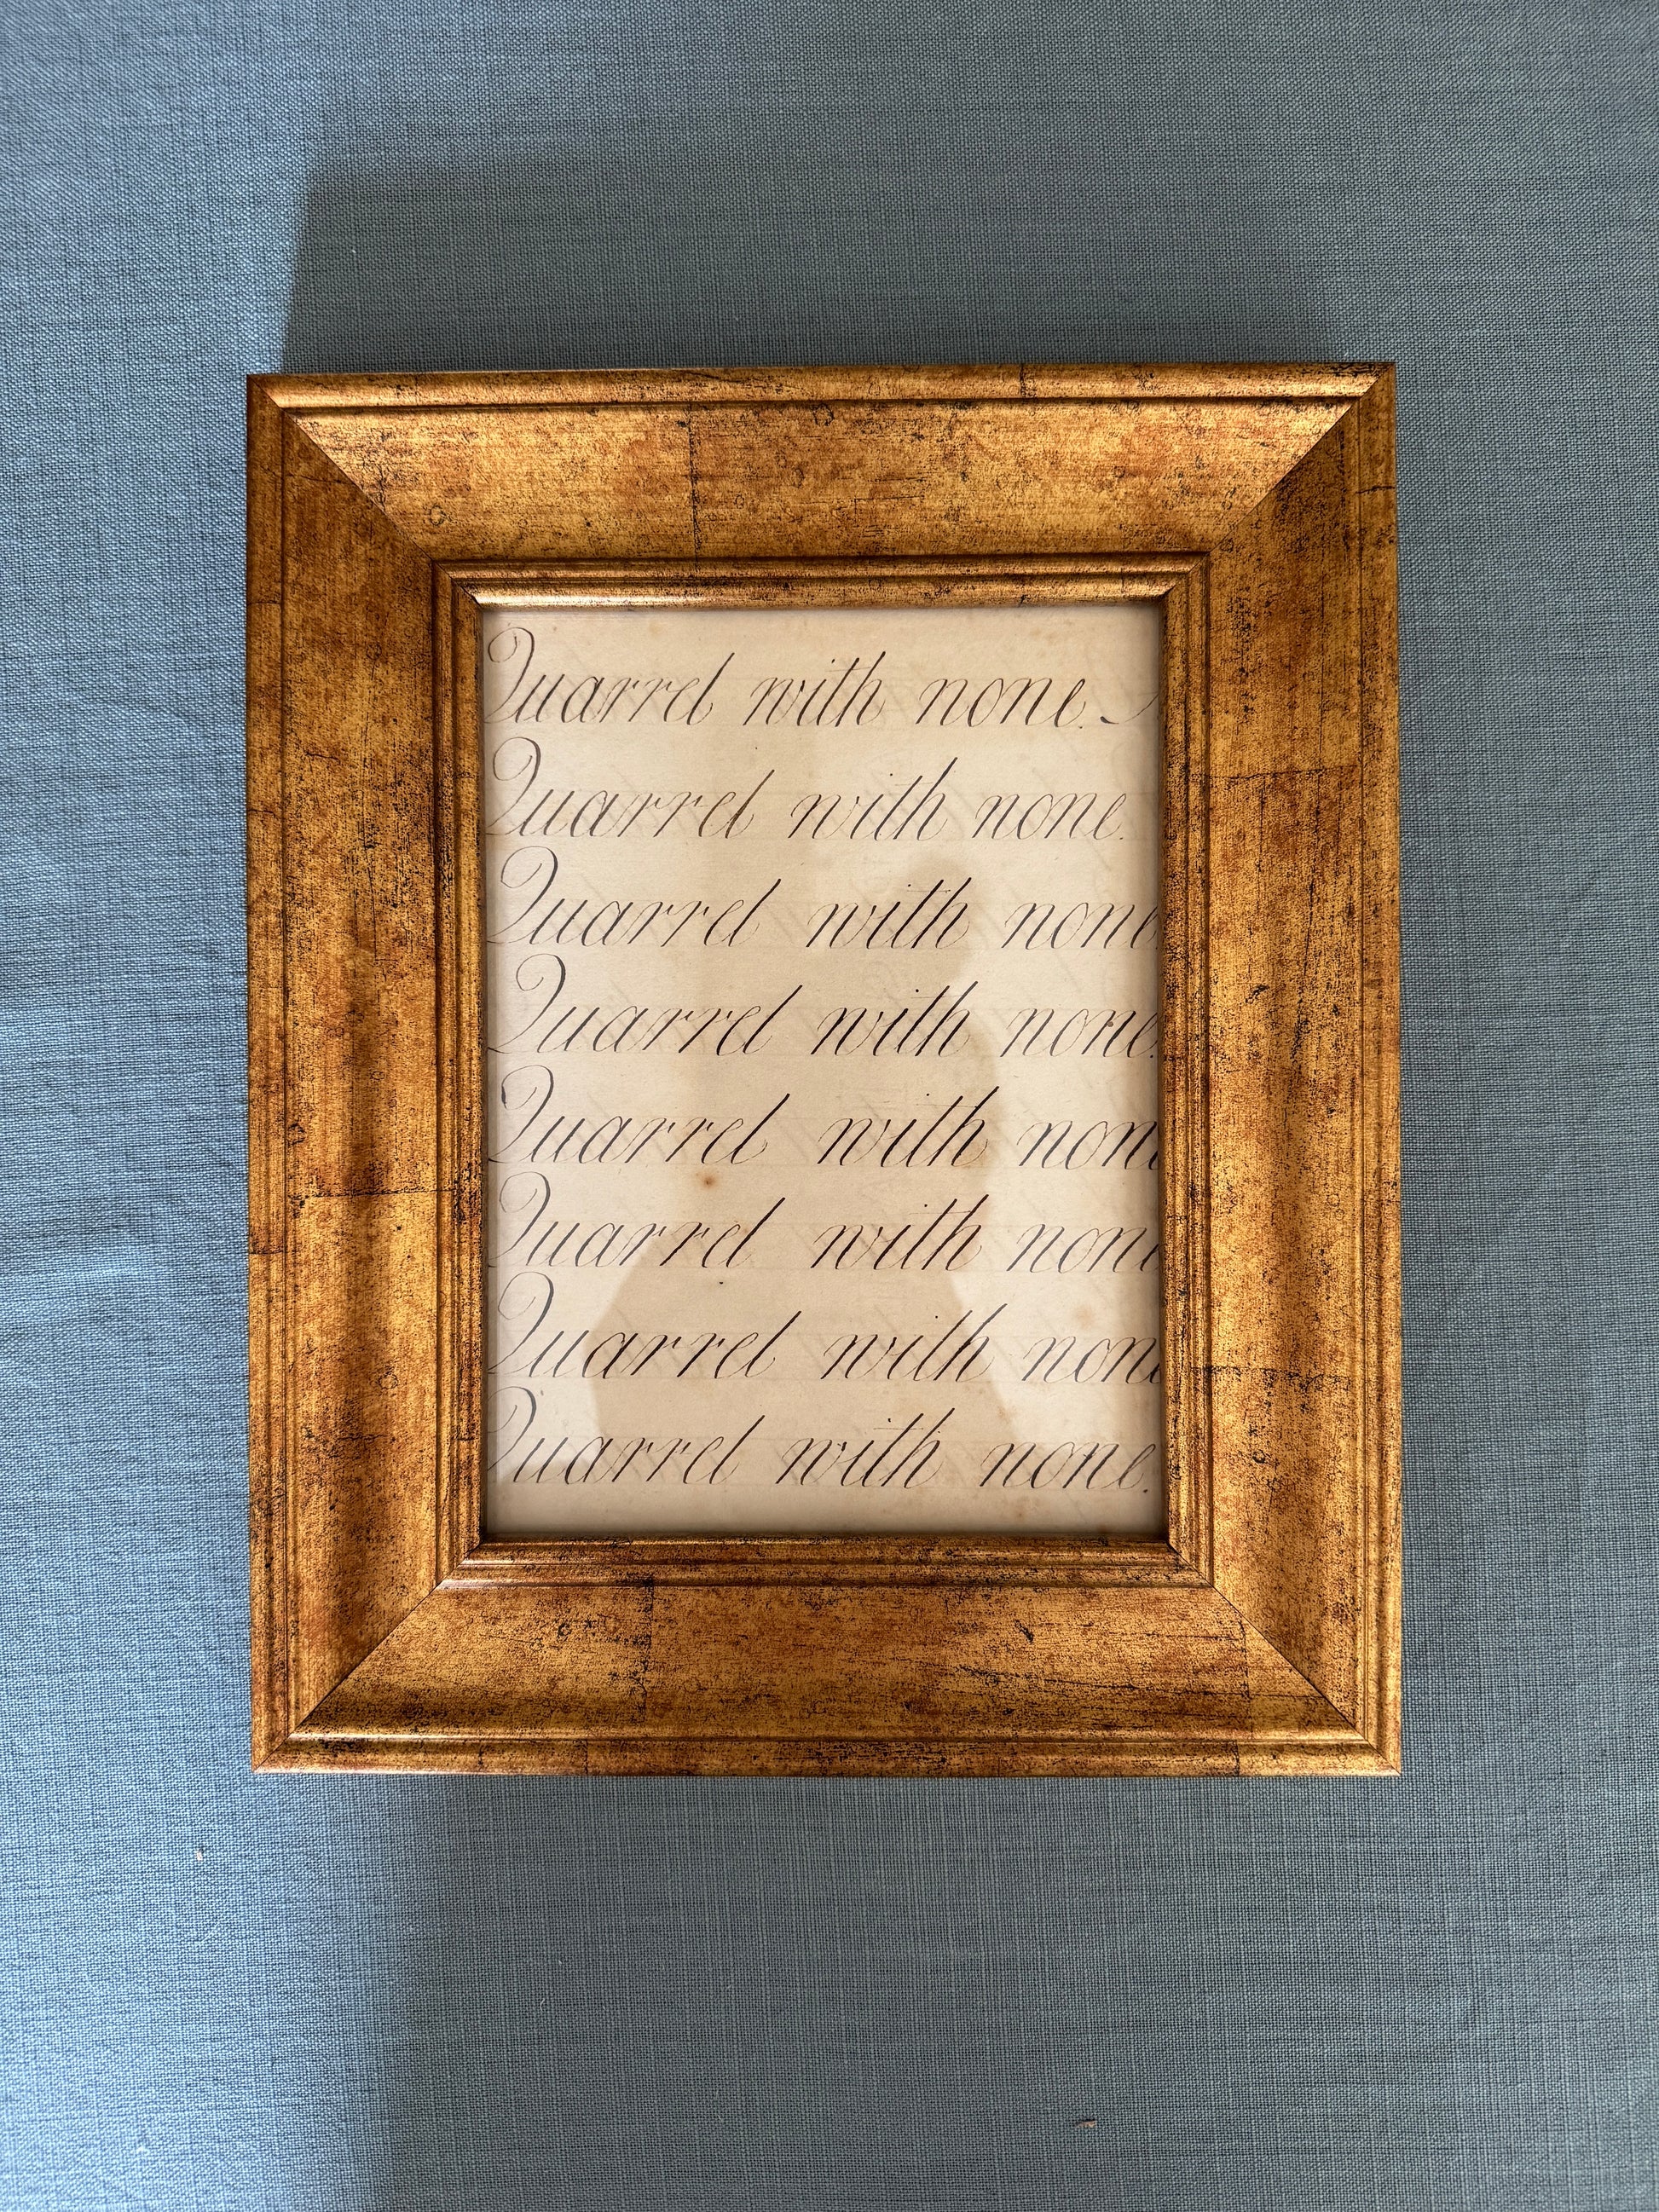 Quarrel with none.
Quarrel with none.
Quarrel with none.
Quarrel with none.
Quarrel with none
Quarrel with none
Quarrel with none
Quarrel with none.